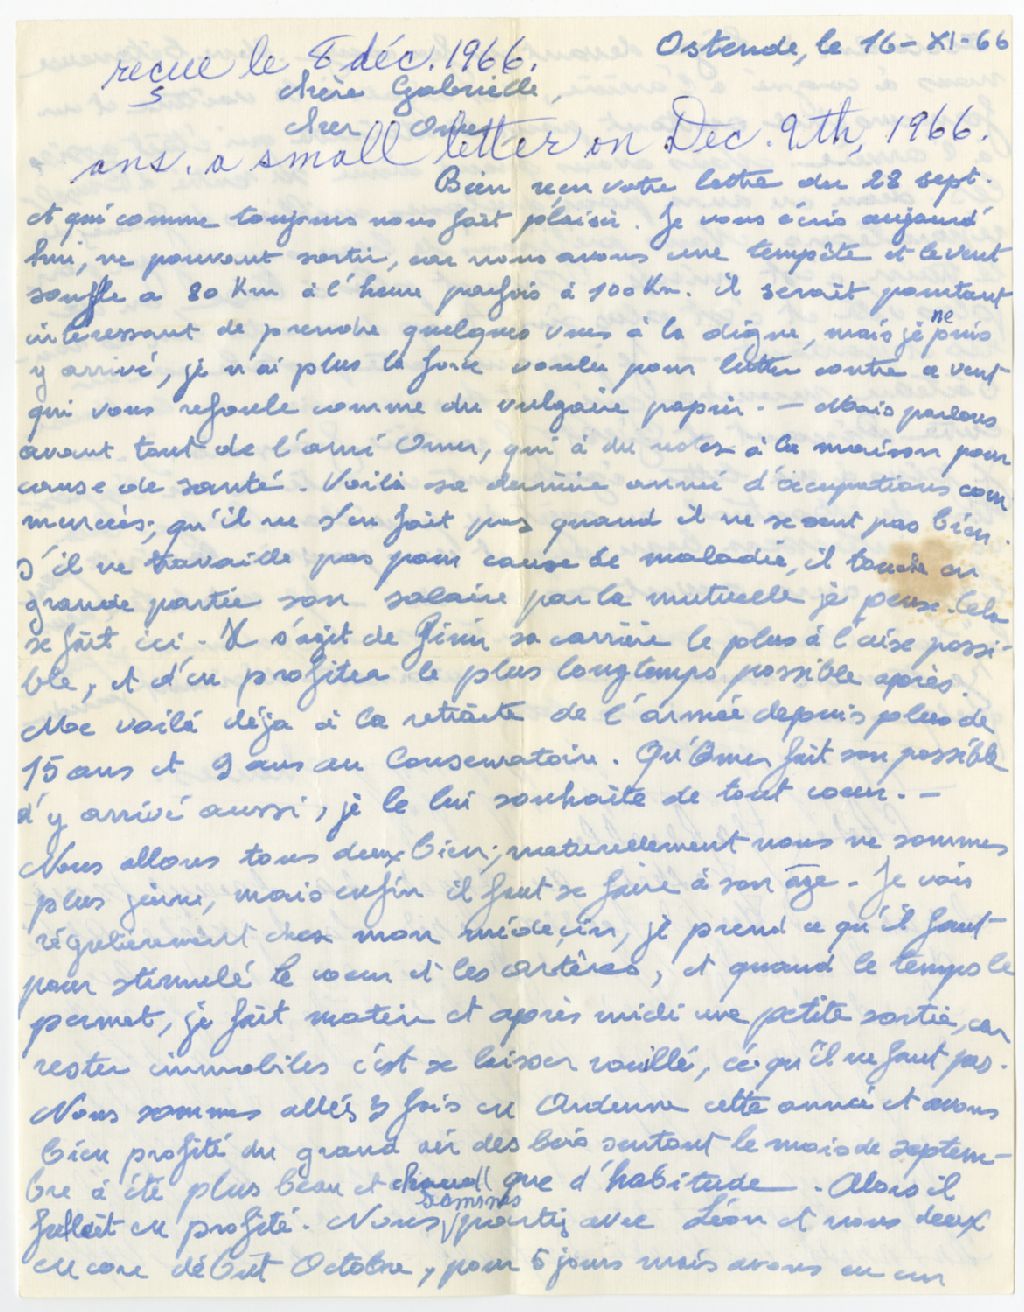 Ostende, le 16-XI-66
reçue le 8 déc. 1966.
Chère Gabrielle,
cher Omer
ans. a small letter on Dec. 9th, 1966.
Bien reçu votre lettre du 28 sept.
et qui comme toujours nous fait plaisir. Je vous écris aujourd'
hui, ne pouvant sortir, car nous avons une tempête et le vent
souffle a 80 Km à l'heure parfois à 100 Km. il serait pourtant
intéressant de prendre quelques vues à la digue, mais je ne puis
y arrivé, je n'ai plus la force voulu pour lutter contre ce vent
qui vous refoule comme du vulgaire papier. — Mais parlons
avant tout de l'ami Omer, qui à du rester à la maison pour
cause de santé. Voilà sa dernière année d'occupations com
mencées; qu'il ne s'en fait pas quand il ne se sent pas bien.
S'il ne travaille pas pour cause de maladie, il touche en
grande partie son salaire par la mutuelle je pense. Cela
se fait ici. Il s'agit de finir sa carrière le plus à l'aise possi-
ble, et d'en profiter le plus longtemps possible après.
Moi voilà déja à la retraite de l'armée depuis plus de
15 ans et 9 ans au Conservatoire. Qu'Omer fait son possible
d'y arrivé aussi, je le lui souhaite de tout coeur. —
Nous allons tous deux bien; naturellement nous ne sommes
plus jeune, mais enfin il faut se faire à son âge. Je vais
régulièrement chez mon médecin, je prend ce qu'il faut
pour stimulé le coeur et les artères, et quand le temps le
permet, je fait matin et après midi une petite sortie, car
rester immobiles c'est se laisser rouillé, ce qu'il ne faut pas.
Nous sommes allés 3 fois en Ardenne cette année et avons
bien profité du grand air des bois surtout le mois de septem-
bre à été plus beau et chaud que d'habitude. Alors il
fallait en profité. Nous sommes partis avec Léon et nous deux
encore début Octobre, pour 5 jours mais avons eu un